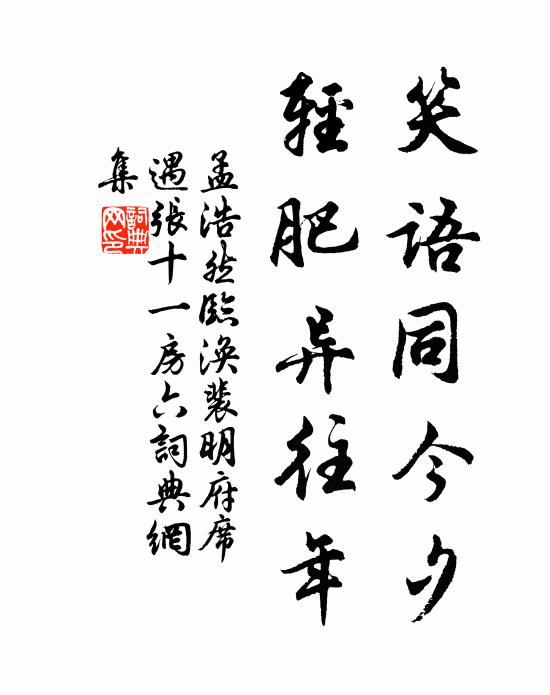 笑語同今夕
輕肥异往年
孟浩然臨渙裴明府席
遇張十一房六詞典網
集
詞典網印